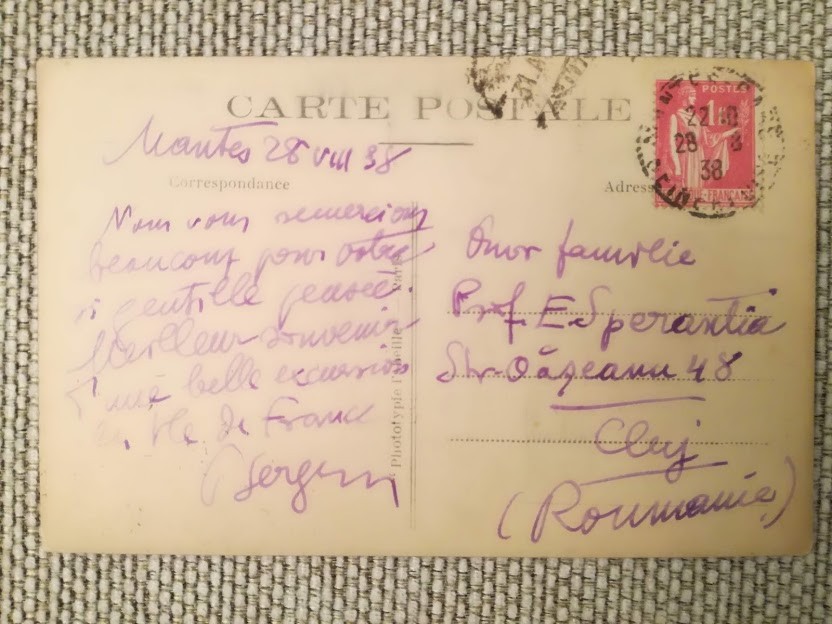 CARTE POSTALE
Mantes 28 VIII 38
Correspondance
Nous vous remercions
beaucoup pour votre
si gentille pensée.
Meilleur souvenir
d'une belle excursion
en Ile de France
Phototypie
Adress
Onor familie
Prof E Sperantia
Str. 48
Cluj
(Roumanie)
POSTES
22
28 8
38
FRANÇAISE